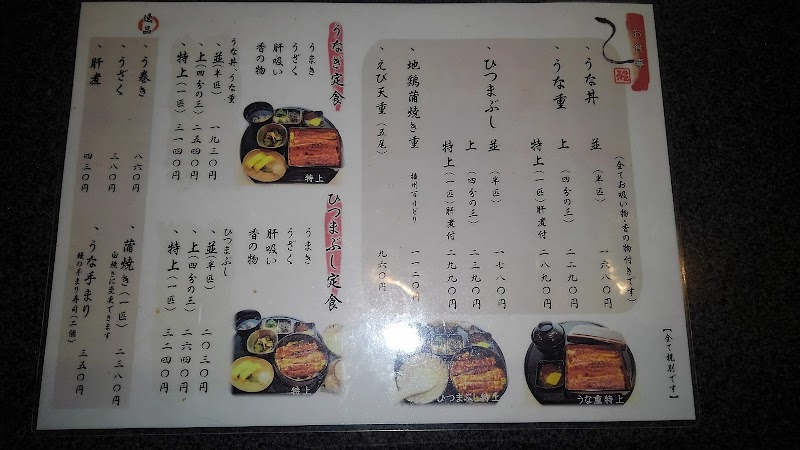 お食事
鰻
(全てお吸い物・香の物付きです)
、うな丼
、うな重
並(半匹) 一六八〇円
上(四分の三) 二二九〇円
特上(一匹)肝煮付 二八九〇円
、ひつまぶし
並(半匹) 一七八〇円
上(四分の三) 二三九〇円
特上(一匹)肝煮付 二九九〇円
、地鶏蒲焼き重 播州百日どり 一一二〇円
、えび天重(五尾) 九六〇円
【全て税別です】
うな重特上
ひつまぶし特上
うなぎ定食
うまき
うざく
肝吸い
香の物
うな丼、うな重
、並(半匹) 一九三〇円
、上(四分の三) 二五四〇円
、特上(一匹) 三一四〇円
特上
ひつまぶし定食
うまき
うざく
肝吸い
香の物
ひつまぶし
、並(半匹) 二〇三〇円
、上(四分の三) 二六四〇円
、特上(一匹) 三二四〇円
特上
逸品
、う巻き 八六〇円
、うざく 三八〇円
、肝煮 四三〇円
、蒲焼き(一匹) 二三八〇円
白焼きに変更できます
、うな手まり 三五〇円
鰻の手まり寿司(二個)